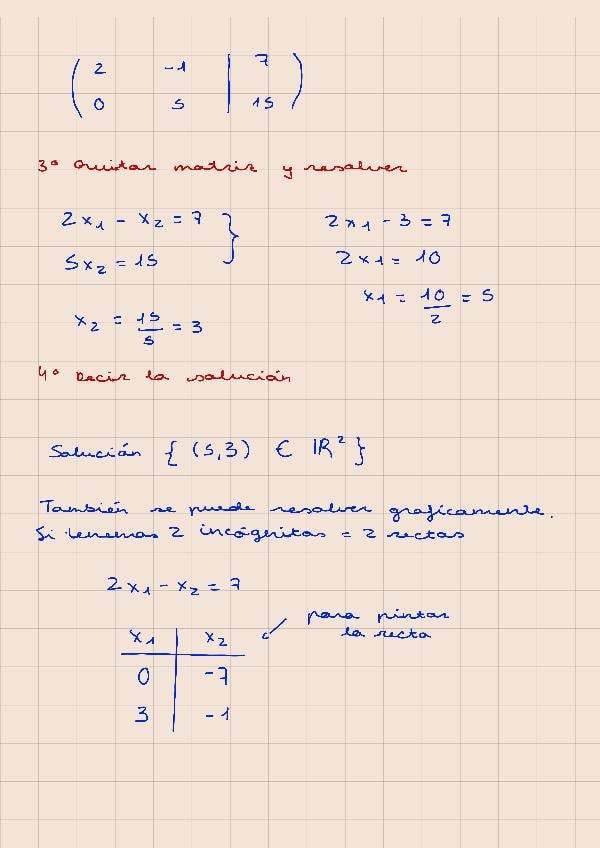 ( 2 -1 | 7 )
( 0 5 | 15 )
3º Quitar matriz y resolver
2x₁ - x₂ = 7 }
5x₂ = 15
x₂ = 15/5 = 3
2x₁ - 3 = 7
2x₁ = 10
x₁ = 10/2 = 5
4º Decir la solución
Solución { (5,3) ∈ ℝ² }
También se puede resolver graficamente.
Si tenemos 2 incógnitas = 2 rectas
2x₁ - x₂ = 7
x₁ | x₂
0 | -7
3 | -1
para pintar
la recta